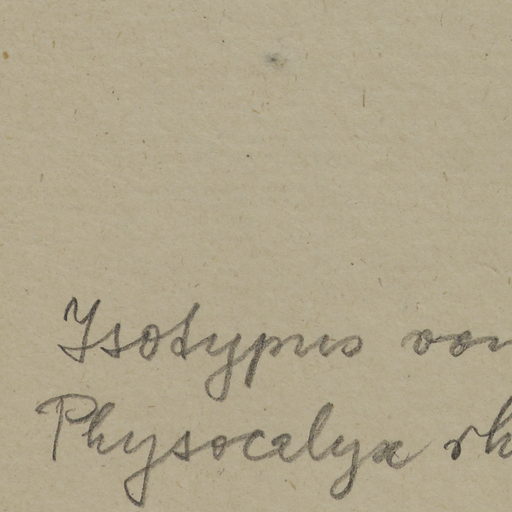 Isotypus von
Physocalyx rh